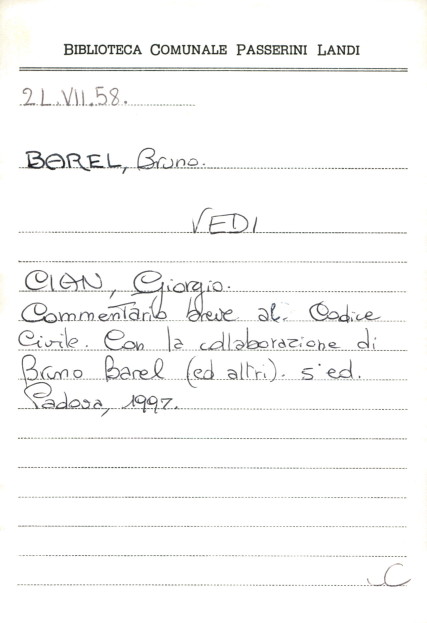 BIBLIOTECA COMUNALE PASSERINI LANDI
2L.VII.58.
BAREL, Bruno.
VEDI
CIAN, Giorgio.
Commentario breve al Codice
Civile. Con la collaborazione di
Bruno Barel (ed altri). 5ª ed.
Padova, 1997.
C